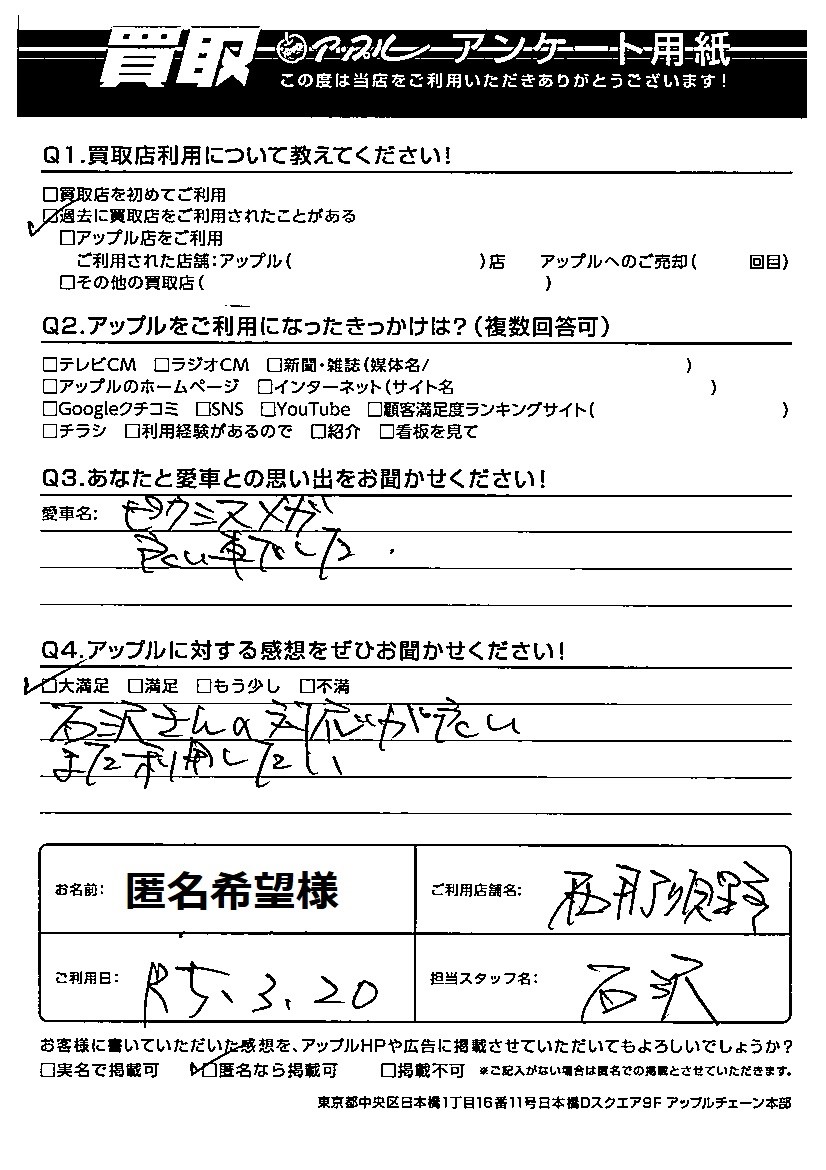 買取 アップル アンケート用紙
この度は当店をご利用いただきありがとうございます!
Q1.買取店利用について教えてください!
□買取店を初めてご利用
☑過去に買取店をご利用されたことがある
□アップル店をご利用
ご利用された店舗:アップル( )店 アップルへのご売却( 回目)
□その他の買取店( )
Q2.アップルをご利用になったきっかけは?(複数回答可)
□テレビCM □ラジオCM □新聞・雑誌(媒体名/ )
□アップルのホームページ □インターネット(サイト名 )
□Googleクチコミ □SNS □YouTube □顧客満足度ランキングサイト( )
□チラシ □利用経験があるので □紹介 □看板を見て
Q3.あなたと愛車との思い出をお聞かせください!
愛車名:
車でした.
Q4.アップルに対する感想をぜひお聞かせください!
☑大満足 □満足 □もう少し □不満
石沢さんの対応が良い
また利用したい
お名前: 匿名希望様 ご利用店舗名: 西那須野
ご利用日: R5.3.20 担当スタッフ名: 石沢
お客様に書いていただいた感想を、アップルHPや広告に掲載させていただいてもよろしいでしょうか?
□実名で掲載可 ☑匿名なら掲載可 □掲載不可 ※ご記入がない場合は匿名での掲載とさせていただきます。
東京都中央区日本橋1丁目16番11号日本橋Dスクエア9F アップルチェーン本部